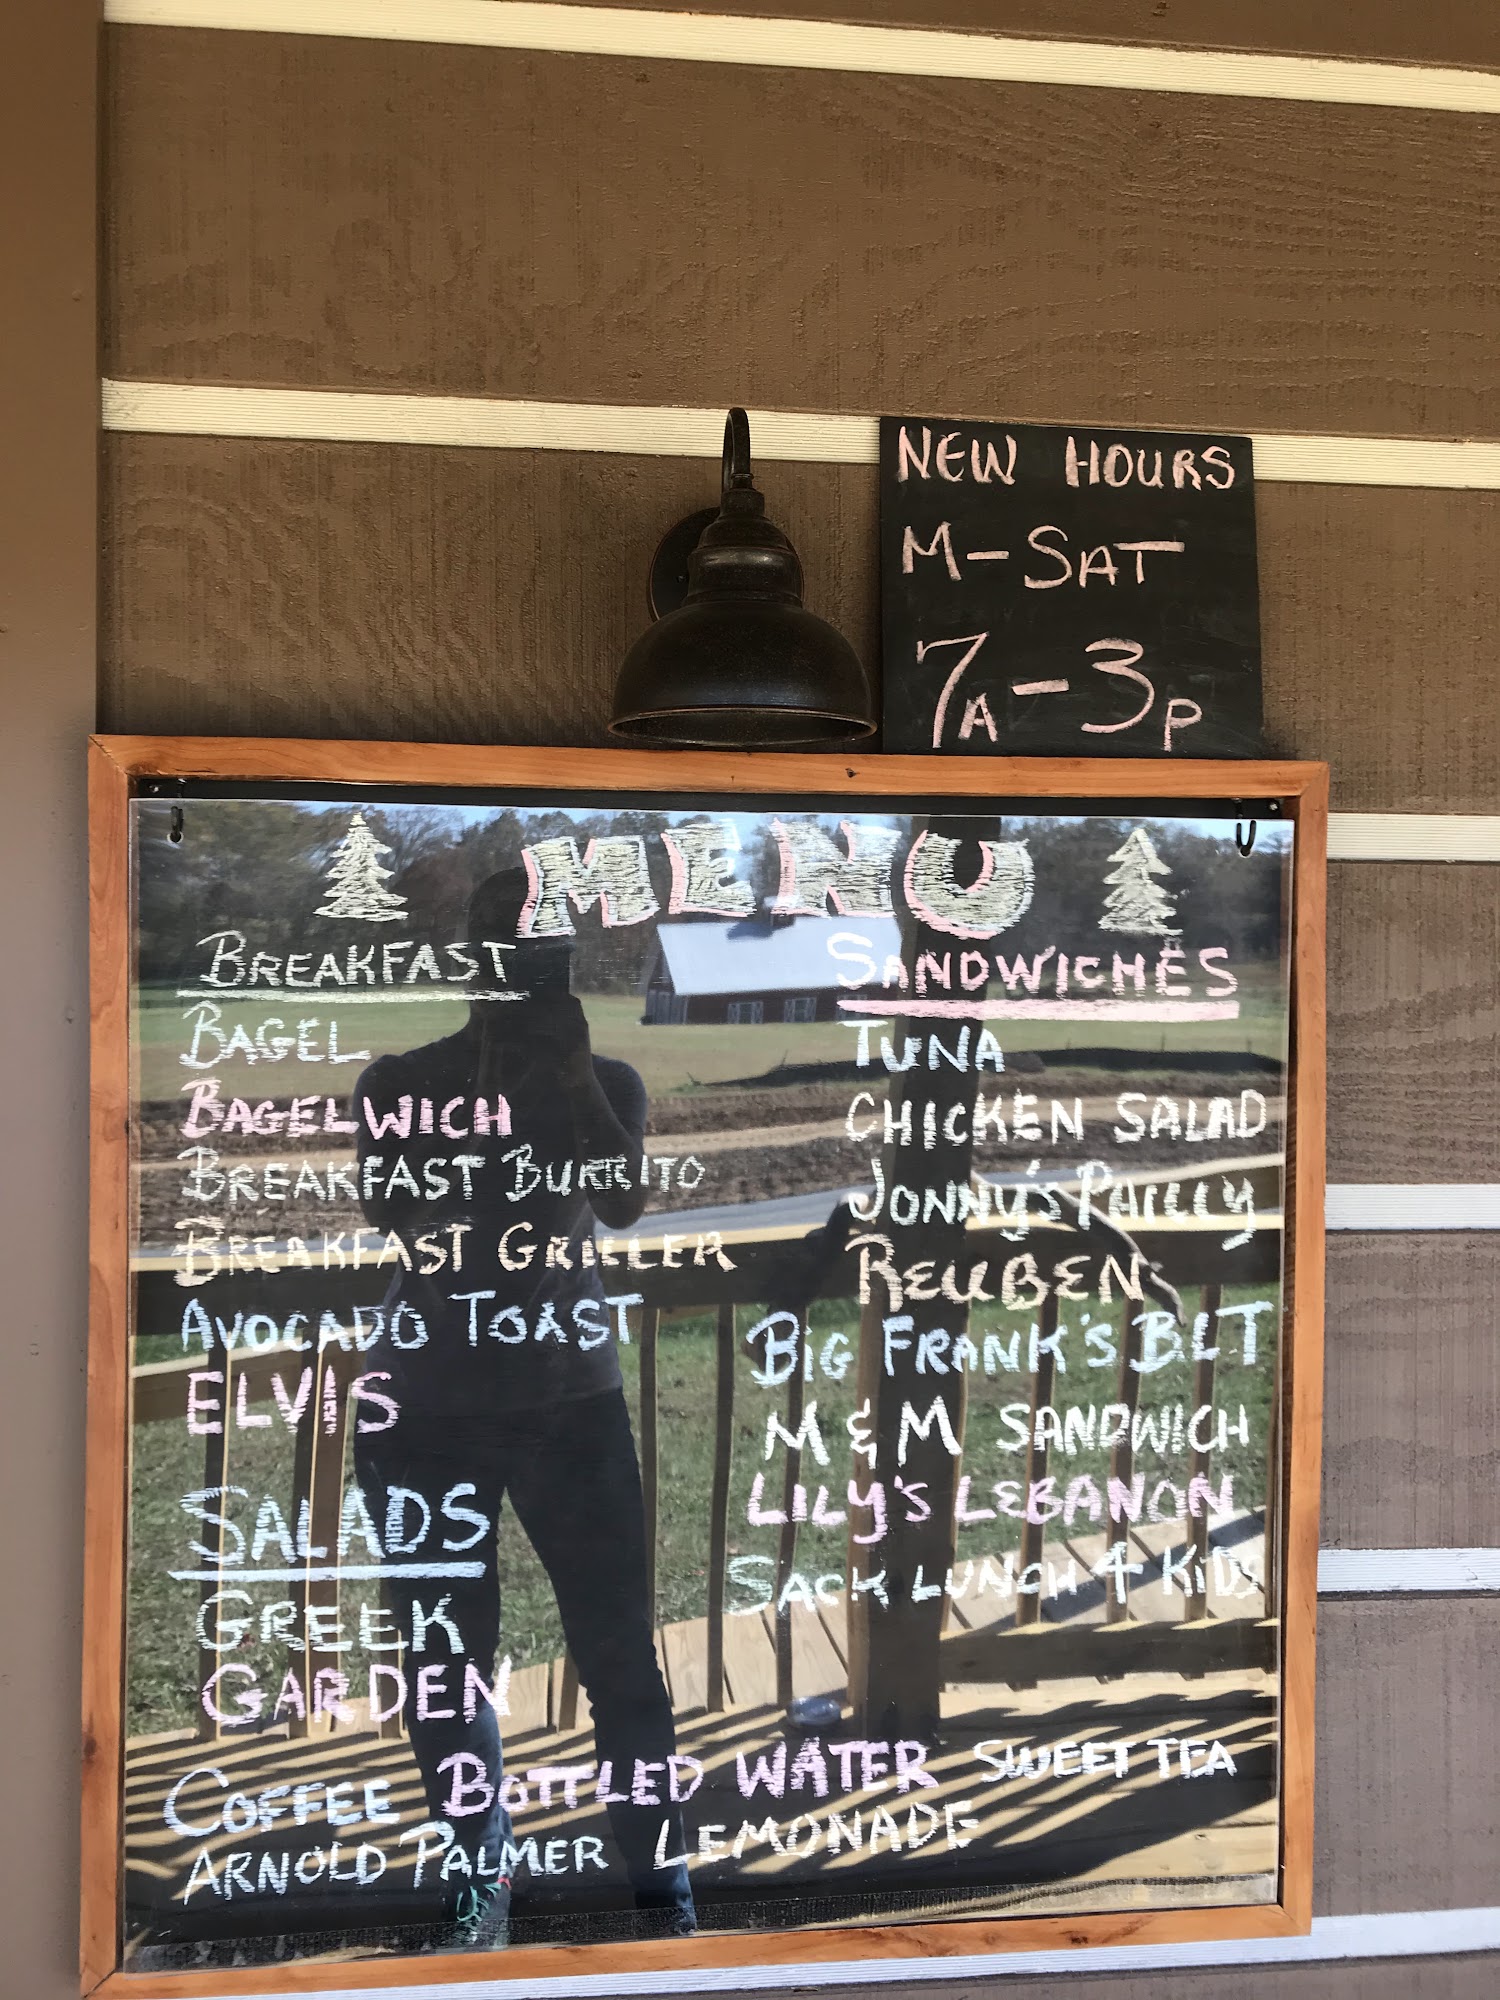 NEW HOURS
M-SAT
7A-3P
MENU
BREAKFAST
BAGEL
BAGELWICH
BREAKFAST BURRITO
BREAKFAST GRILLER
AVOCADO TOAST
ELVIS
SALADS
GREEK
GARDEN
SANDWICHES
TUNA
CHICKEN SALAD
JONNY'S PHILLY
REUBEN
BIG FRANK'S BLT
M & M SANDWICH
LILY'S LEBANON
SACK LUNCH 4 KIDS
COFFEE BOTTLED WATER SWEET TEA
ARNOLD PALMER LEMONADE